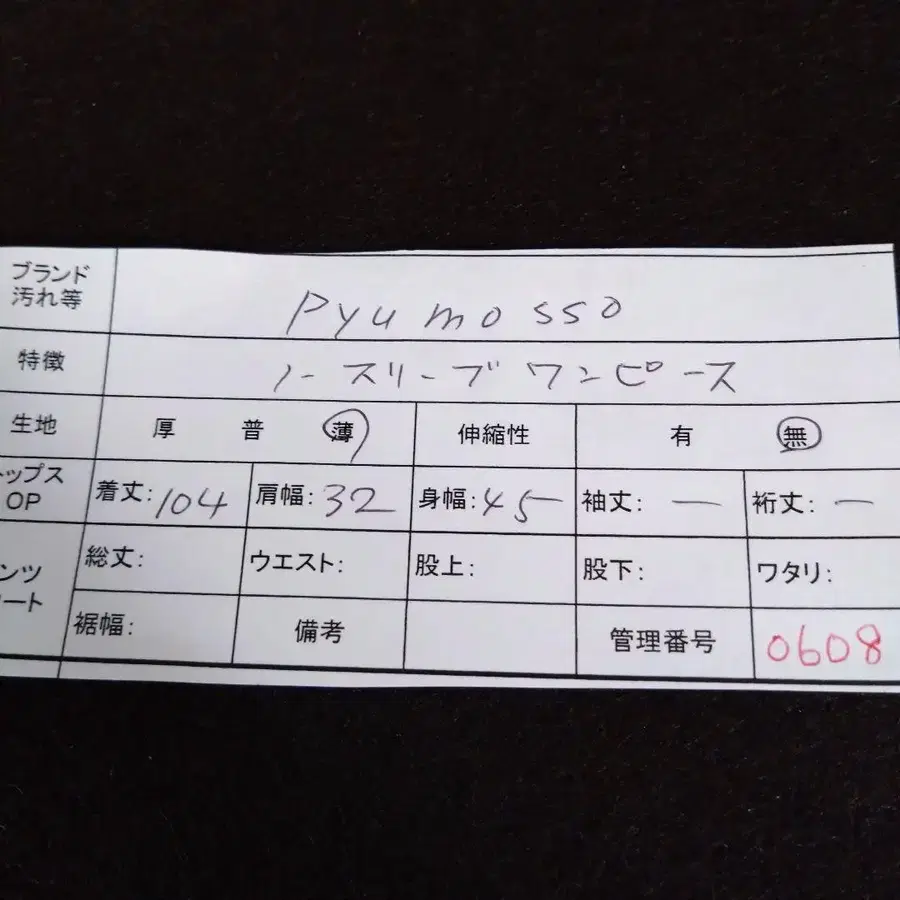 ブランド
汚れ等
Pyumosso
特徴
ノースリーブワンピース
生地 厚 普 薄 伸縮性 有 無
トップス
OP
着丈:104 肩幅:32 身幅:45 袖丈:ー 裄丈:ー
ンツ
ート
総丈: ウエスト: 股上: 股下: ワタリ:
裾幅: 備考 管理番号 0608